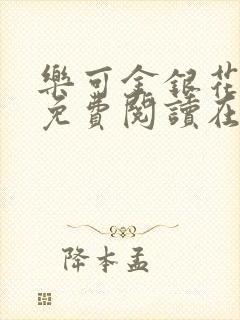 樂可金銀花
免費閱讀在
降本孟